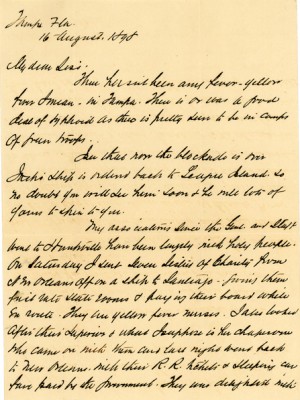 Tampa Fla.
16 August. 1898
My dear Sis:
There has not been any fever - yellow
fever I mean - in Tampa. There is or was a good
deal of typhoid as there is pretty sure to be in camps
of green troops.
See that now the blockade is over
Jack's ship is ordered back to League Island. So
no doubt you will see him soon & he will lots of
yarns to spin to you.
My associations since the Genl. and Staff
went to Huntsville have been largely with holy people.
On Saturday I sent seven Sisters of Charity from
N. Orleans off on a ship to Santiago - giving them
first rate state rooms & paying their board while
En route. They are yellow fever nurses. I also looked
after their Superior & what I suppose is the chaperone
who came on with them and last night went back
to New Orleans - with their R.R. tickets & sleeping car
fare paid by the Government. They were delighted with